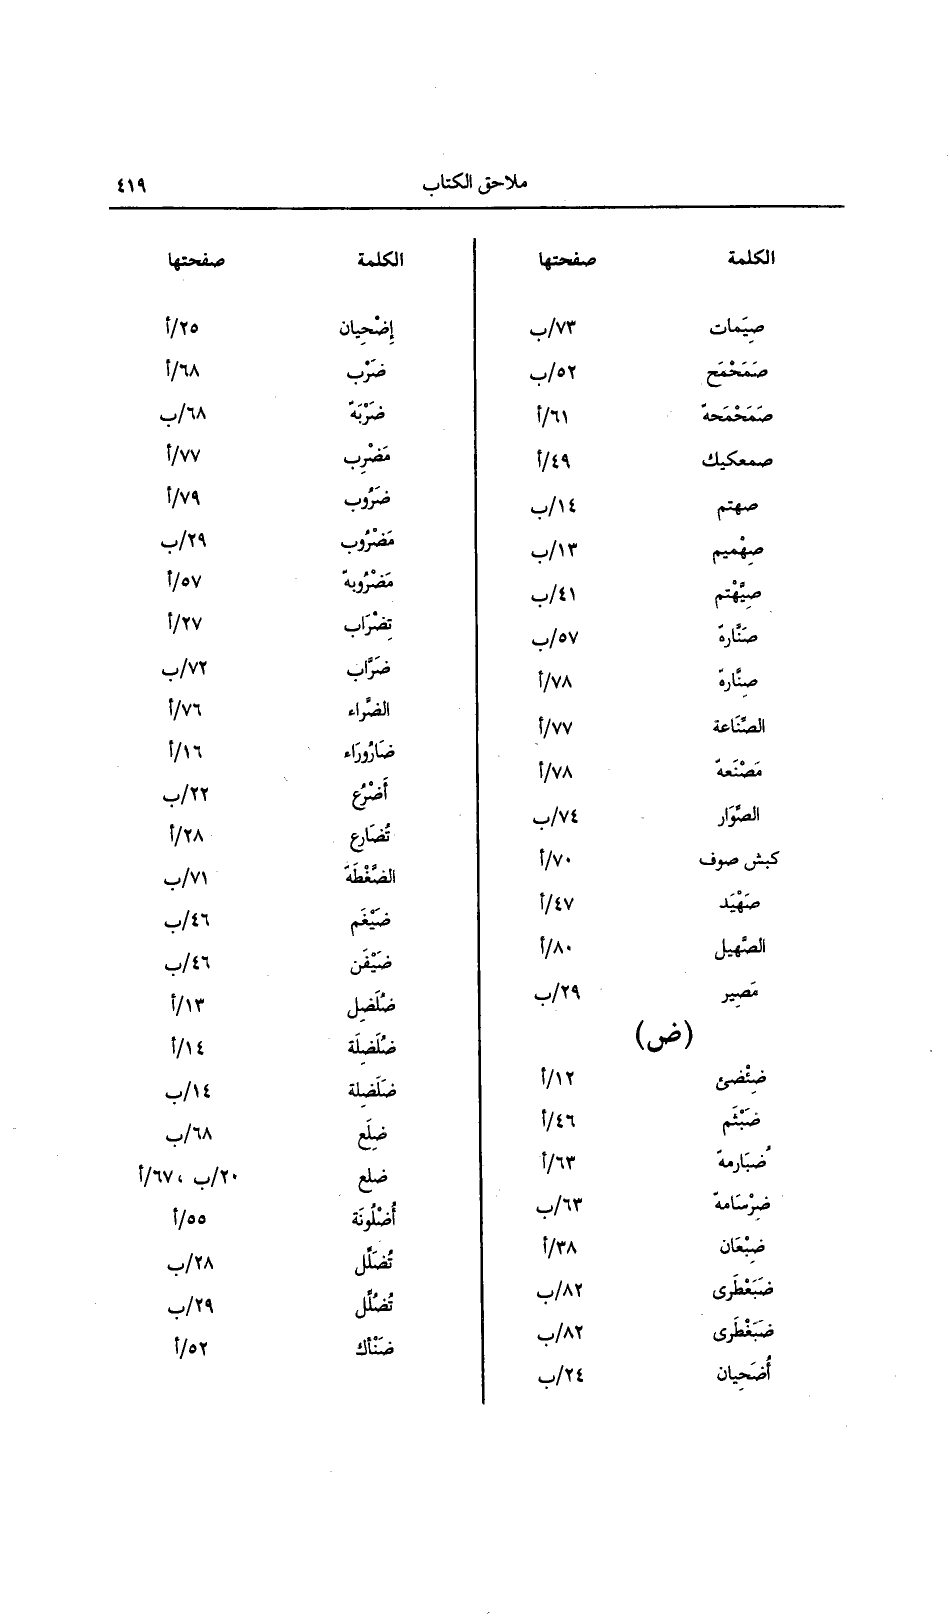 ملاحق الكتاب ٤١٩
الكلمة صفحتها
صِيَمات ٧٣/ب
صَمَحْمَح ٥٢/ب
صَمَحْمَحة ٦١/أ
صمعكيك ٤٩/أ
صهتم ١٤/ب
صِهْميم ١٣/ب
صِيَّهْتم ٤١/ب
صَنَّارة ٥٧/ب
صِنَّارة ٧٨/أ
الصِّنَاعة ٧٧/أ
مَصْنَعة ٧٨/أ
الصَّوَار ٧٤/ب
كبش صوف ٧٠/أ
صَهْيَد ٤٧/أ
الصَّهيل ٨٠/أ
مَصِير ٢٩/ب
(ض)
ضِئْضئ ١٢/أ
ضَبْثَم ٤٦/أ
ضُبَارمة ٦٣/أ
ضِرْسَامة ٦٣/ب
ضِبْعَان ٣٨/أ
ضَبَعْطَرى ٨٢/ب
ضَبَغْطَرى ٨٢/ب
أُضَحِيان ٢٤/ب
الكلمة صفحتها
إِضْحِيان ٢٥/أ
ضَرْب ٦٨/أ
ضَرْبَة ٦٨/ب
مَضْرِب ٧٧/أ
ضَرُوب ٧٩/أ
مَضْرُوب ٢٩/ب
مَضْرُوبة ٥٧/أ
تِضْرَاب ٢٧/أ
ضَرَّاب ٧٢/ب
الضَّراء ٧٦/أ
ضَارُورَاء ١٦/أ
أَضْرُع ٢٢/ب
تُضَارع ٢٨/أ
الضَّغْطَة ٧١/ب
ضَيْغَم ٤٦/ب
ضَيْفَن ٤٦/ب
ضُلَضِل ١٣/أ
ضُلَضِلَة ١٤/أ
ضَلَضِلة ١٤/ب
ضِلَع ٦٨/ب
ضلع ٢٠/ب ، ٦٧/أ
أُضْلُونَة ٥٥/أ
تُضَلِّل ٢٨/ب
تُضُلِّل ٢٩/ب
ضَنْأك ٥٢/أ